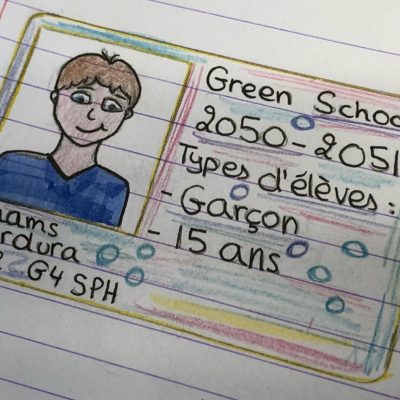 Green Schoo
2050-2051
Types d'élèves :
- Garçon
- 15 ans
hams
rdura
G4 SPH